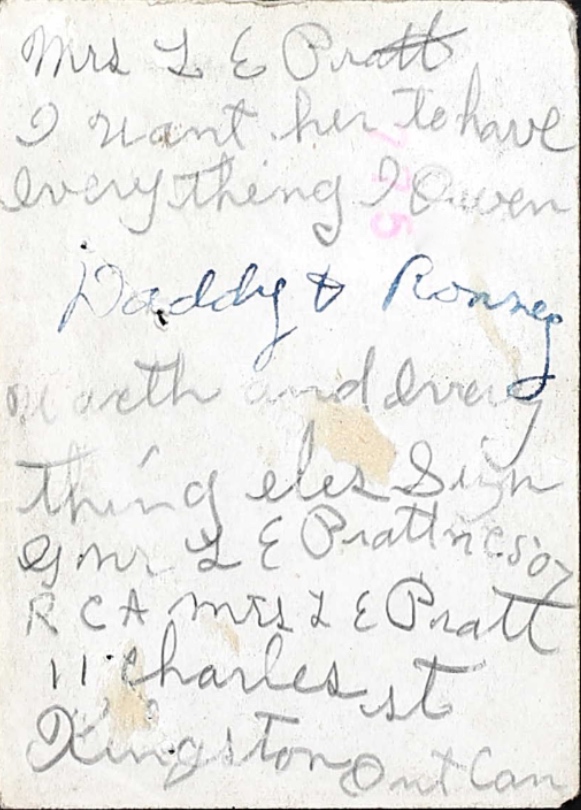 Mrs L E Pratt
I want her to have
everything I Owen
775
Daddy & Ronney
worth and every
thing eles Sign
By mr L E Pratt
R C A Mrs L E Pratt
11 Charles st
Kingston Ont Can